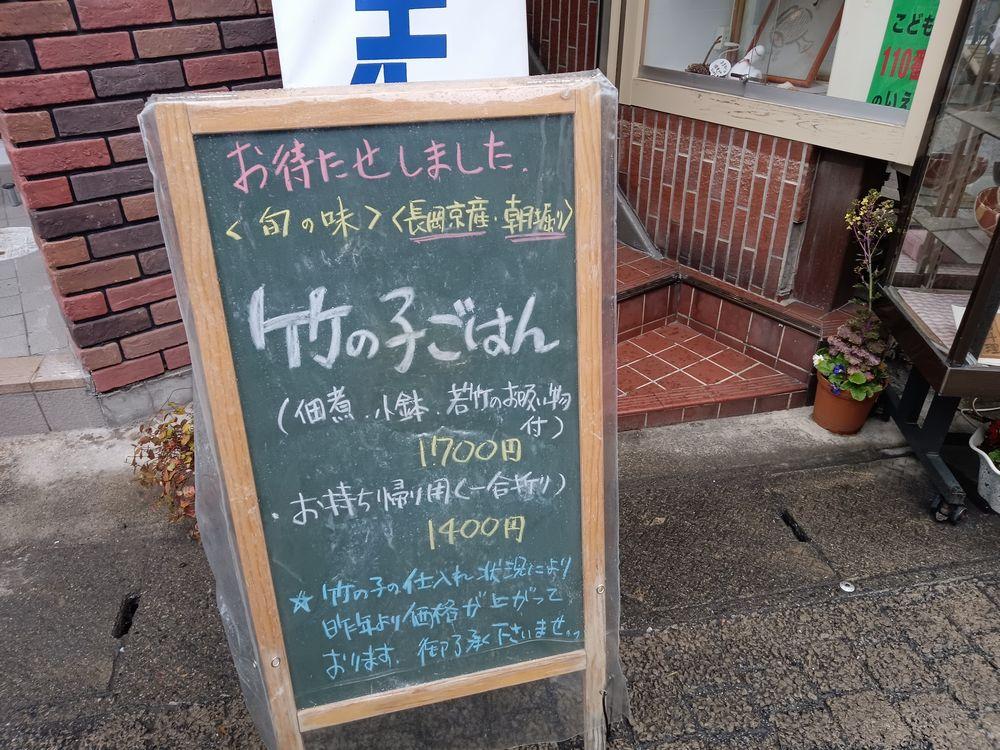 お待たせしました.
＜旬の味＞＜長岡京産・朝堀り＞
竹の子ごはん
(佃煮.小鉢.若竹のお吸い物
付)
1.700円
・お持ち帰り用(一合折り)
1.400円
☆竹の子の仕入れ状況により
昨年より価格が上がって
おります.御了承下さいませ。
こども
110番
のいえ